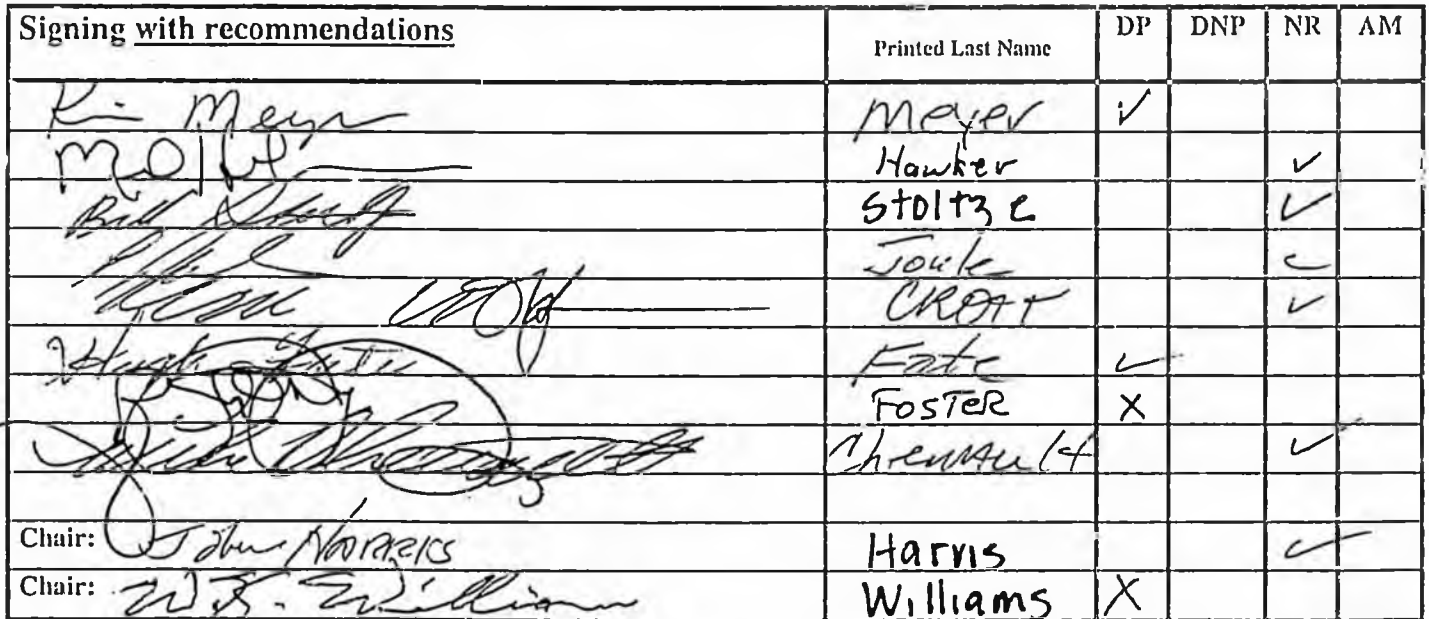 Signing with recommendations Printed Last Name DP DNP NR AM
Kim Meyer Meyer ✓
Hawker ✓
Bill Stoltze ✓
Joule
CROFT ✓
Hugh Fate Fate ✓
FOSTER X
Mike Chenault Chenault ✓
Chair: John Harris Harris ✓
Chair: W.K. Williams Williams X